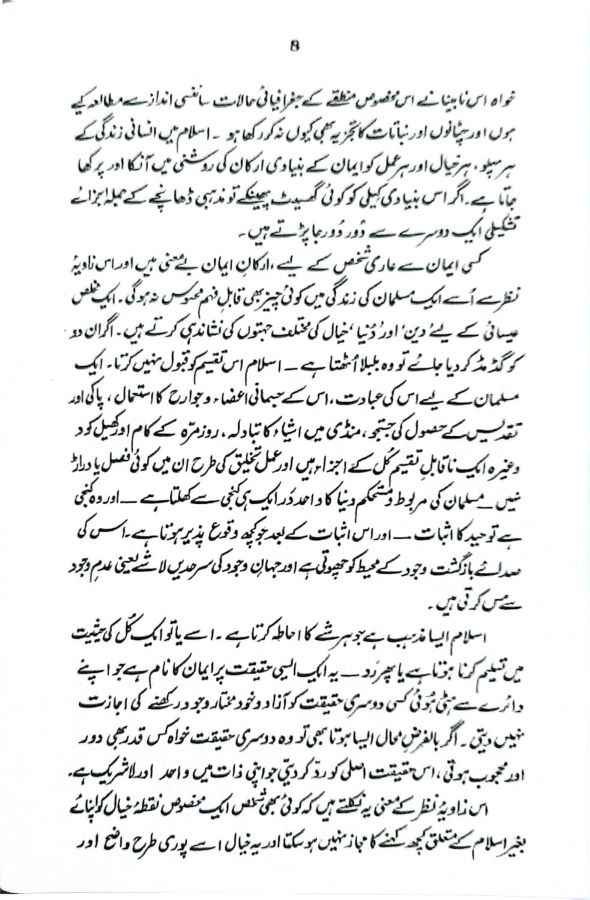 8
خواہ اس نابینا نے اس مخصوص منطقے کے جغرافیائی حالات سائنسی انداز سے مطالعہ کیے
ہوں اور چٹانوں اور نباتات کا تجزیہ بھی کیوں نہ کر رکھا ہو ۔ اسلام میں انسانی زندگی کے
ہر پہلو ، ہر خیال اور ہر عمل کو ایمان کے بنیادی ارکان کی روشنی میں آنکا اور پرکھا
جاتا ہے ۔ اگر اس بنیادی کیلی کو کوئی گھسیٹ پھینکے تو مذہبی ڈھانچے کے جملہ اجزائے
تشکیلی ایک دوسرے سے دُور دُور جا پڑتے ہیں ۔
کسی ایمان سے عاری شخص کے لیے ، ارکانِ ایمان بے معنی ہیں اور اس زاویۂ
نظر سے اُسے ایک مسلمان کی زندگی میں کوئی چیز بھی قابلِ فہم محسوس نہ ہوگی ۔ ایک مخلص
عیسائی کے لیے 'دین' اور 'دُنیا' خیال کی مختلف جہتوں کی نشاندہی کرتے ہیں ۔ اگر ان دو
کو گڈ مڈ کر دیا جائے تو وہ بلبلا اُٹھتا ہے — اسلام اس تقسیم کو قبول نہیں کرتا ۔ ایک
مسلمان کے لیے اس کی عبادت ، اس کے جسمانی اعضاء و جوارح کا استعمال ، پاکی اور
تقدیس کے حصول کی جستجو ، منڈی میں اشیاء کا تبادلہ ، روزمرّہ کے کام اور کھیل کود
وغیرہ ایک ناقابلِ تقسیم کُل کے اجزاء ہیں اور عملِ تخلیق کی طرح ان میں کوئی فصل یا دراڑ
نہیں — مسلمان کی مربوط و مستحکم دنیا کا واحد در ایک ہی کنجی سے کھلتا ہے — اور وہ کنجی
ہے توحید کا اثبات — اور اس اثبات کے بعد جو کچھ وقوع پذیر ہوتا ہے ۔ اس کی
صدائے بازگشت وجود کے محیط کو چھوتی ہے اور جہانِ وجود کی سرحدیں لا شے یعنی عدمِ وجود
سے مس کرتی ہیں ۔
اسلام ایسا مذہب ہے جو ہر شے کا احاطہ کرتا ہے ۔ اسے یا تو ایک کُل کی حیثیت
میں تسلیم کرنا ہوتا ہے یا پھر رَد — یہ ایک ایسی حقیقت پر ایمان کا نام ہے جو اپنے
دائرے سے ہٹی ہوئی کسی دوسری حقیقت کو آزاد و خود مختار وجود رکھنے کی اجازت
نہیں دیتی ۔ اگر بالفرضِ محال ایسا ہوتا بھی تو وہ دوسری حقیقت خواہ کس قدر بھی دور
اور محجوب ہوتی ، اس حقیقت اصلی کو ردّ کر دیتی جو اپنی ذات میں واحد اور لاشریک ہے ۔
اس زاویۂ نظر کے معنی یہ نکلتے ہیں کہ کوئی بھی شخص ایک مخصوص نقطۂ خیال کو اپنائے
بغیر اسلام کے متعلق کچھ کہنے کا مجاز نہیں ہو سکتا اور یہ خیال اسے پوری طرح واضح اور